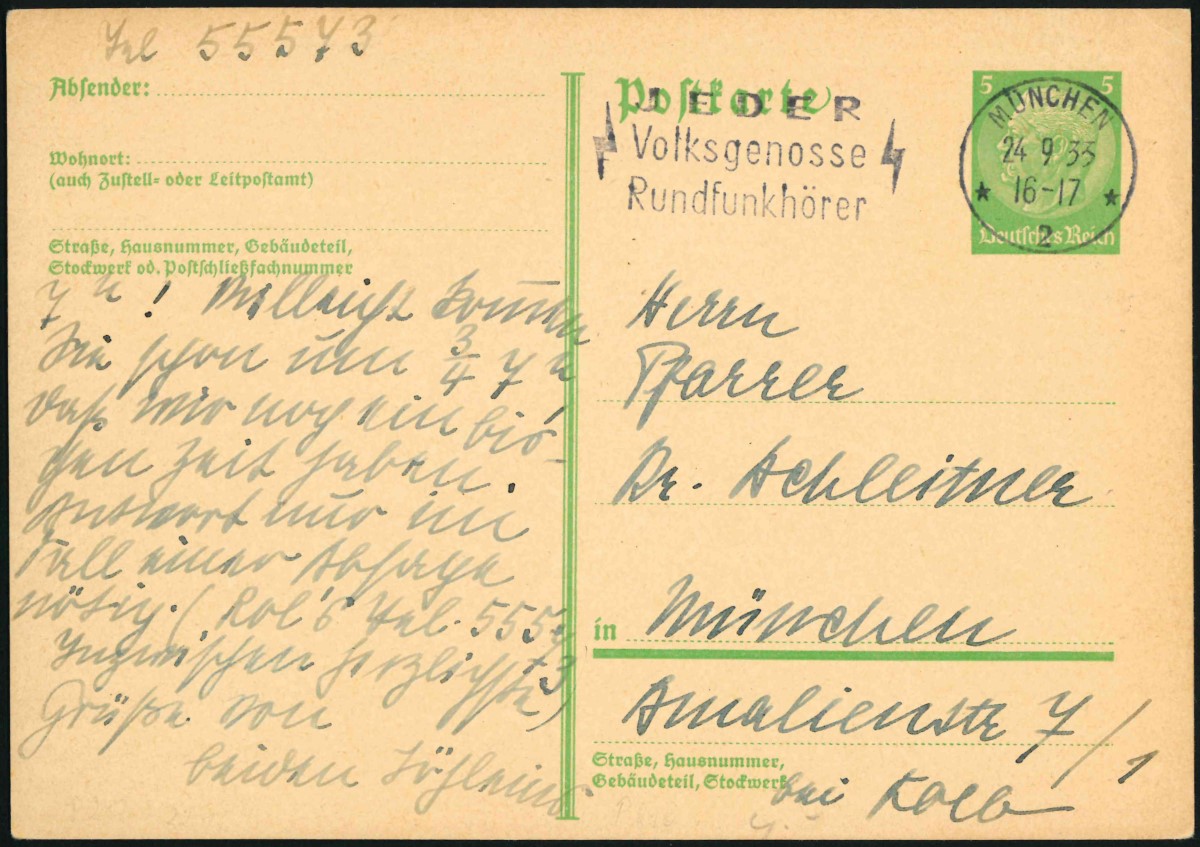 Tel 55573
Absender:
Wohnort:
(auch Zustell- oder Leitpostamt)
Straße, Hausnummer, Gebäudeteil,
Stockwerk od. Postschließfachnummer
7 h! Vielleicht kommen
Sie schon um 3/4 7 h
daß wir noch ein bis-
chen Zeit haben.
Antwort nur im
Fall einer Absage
nötig. (Tel. 555
73)
Inzwischen herzlichste
Grüße von
beiden
Postkarte
JEDER
Volksgenosse
Rundfunkhörer
5 5
MÜNCHEN
24 9.33
16-17
2
Deutsches Reich
Herrn
Pfarrer
Dr. Achleitner
in München
Amalienstr 7/1
Straße, Hausnummer,
Gebäudeteil, Stockwerk
bei Kolb